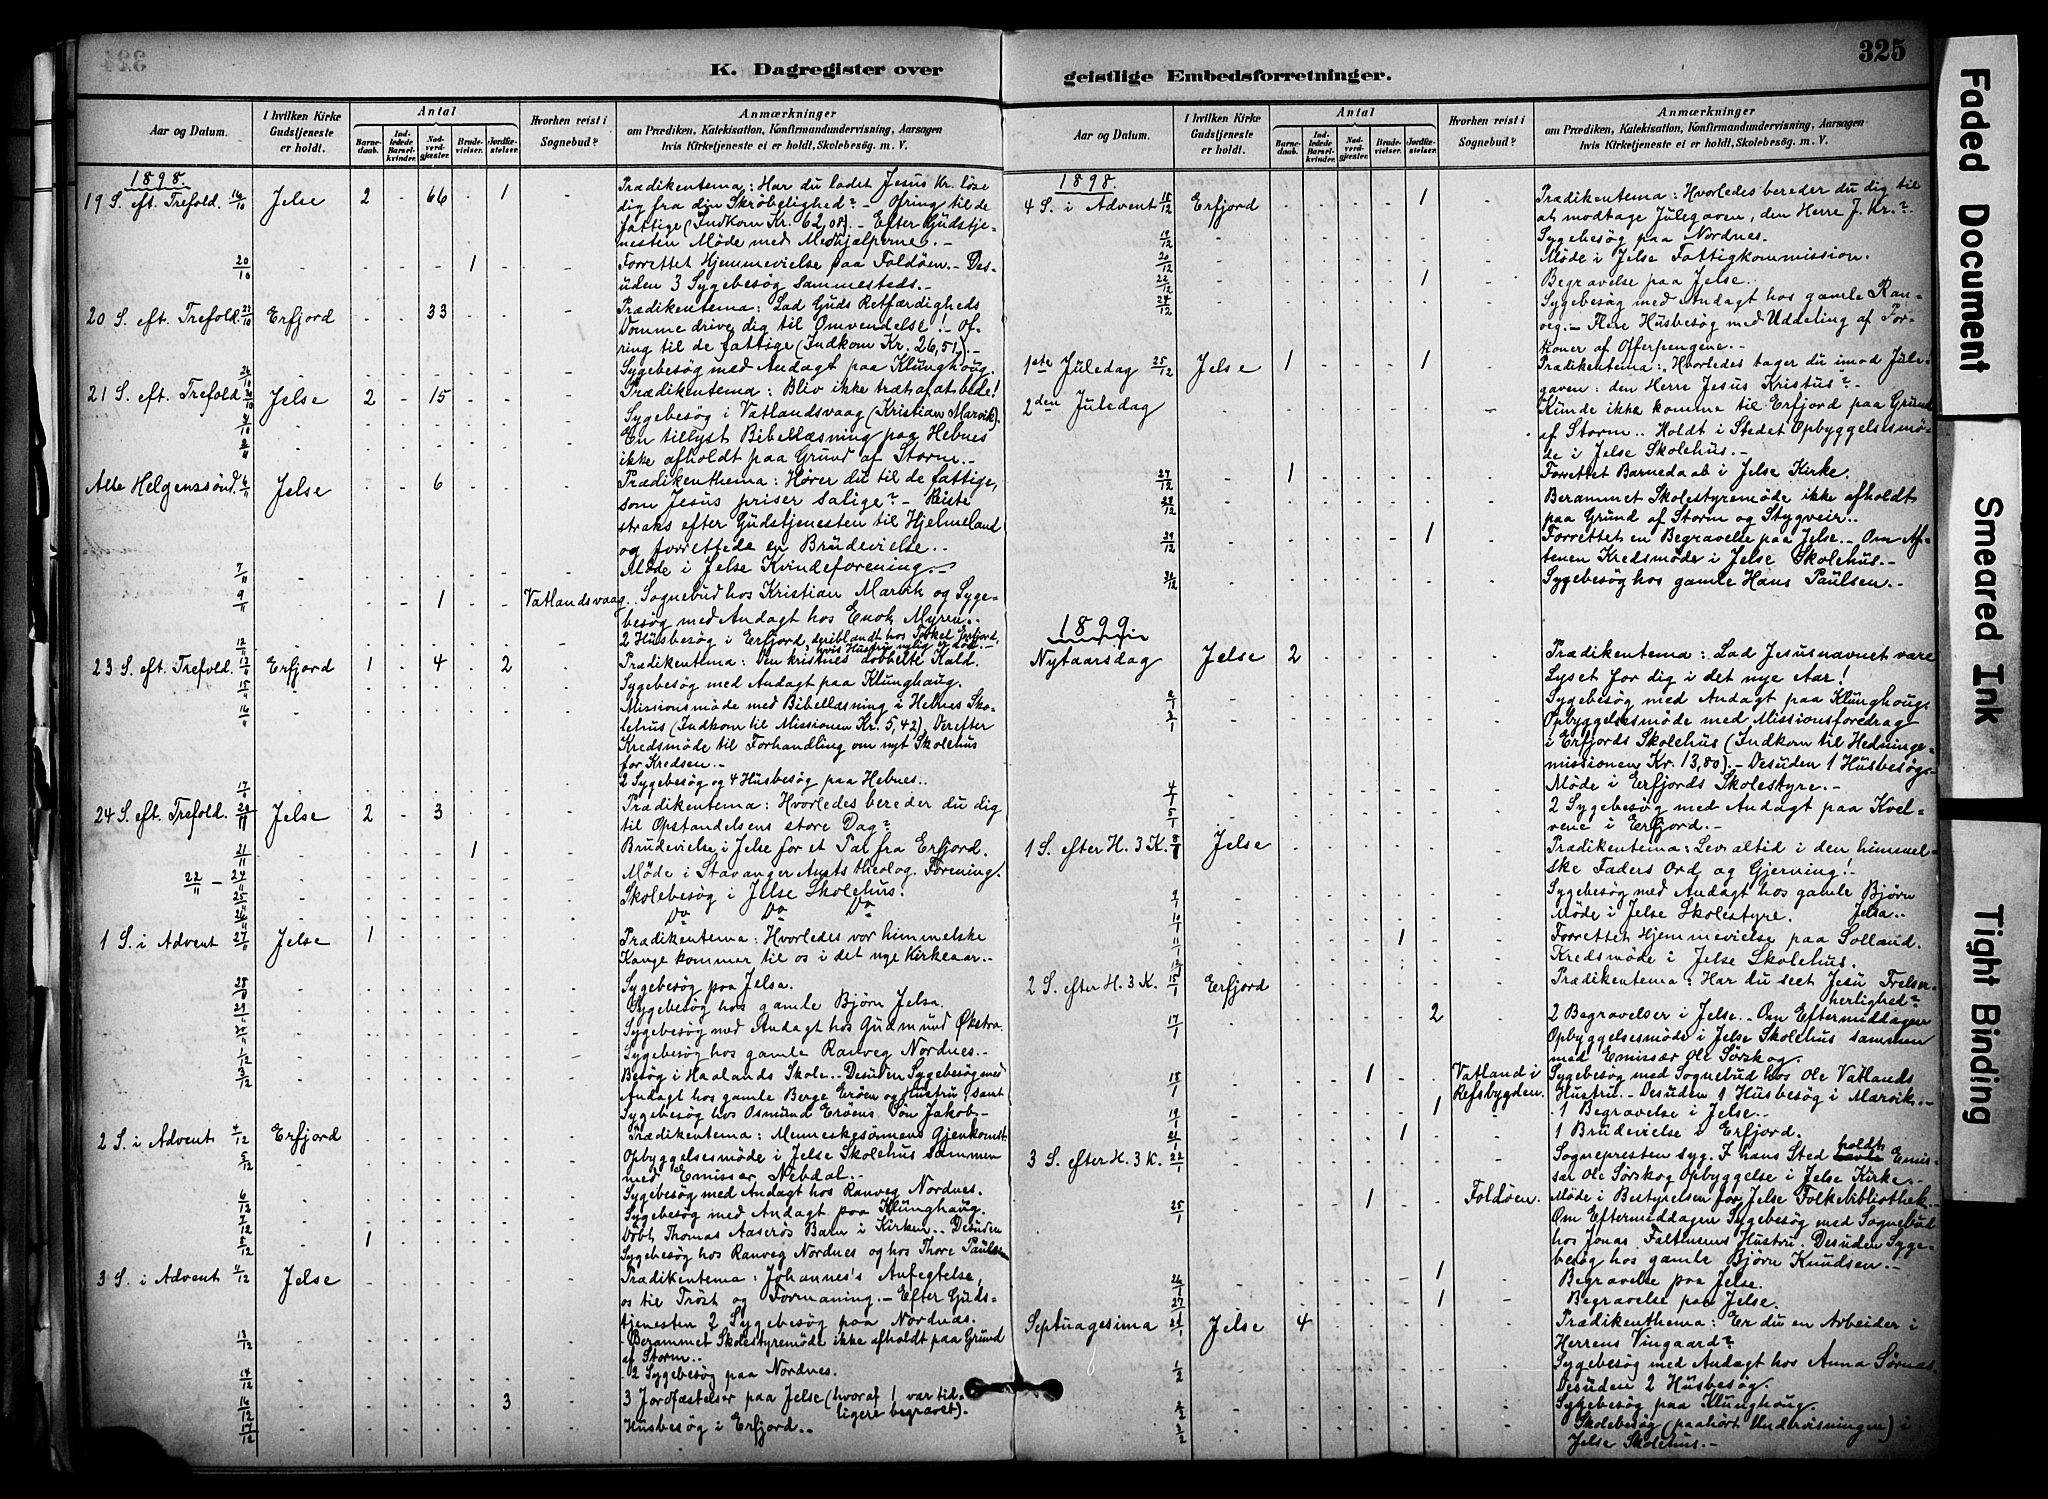 325
K. Dagregister over
geistlige Embedsforretninger.
Faded Document
Smeared Ink
Tight Binding
Aar og Datum.
I hvilken Kirke Gudstjeneste er holdt.
Antal
Barnedaab.
Indledede Barselkvinder.
Nadverdgjæster.
Brudevielser.
Jordfæstelser.
Hvorhen reist i Sognebud?
Anmærkninger
om Prædiken, Katekisation, Konfirmandundervisning, Aarsagen
hvis Kirketjeneste ei er holdt, Skolebesøg. m. V.
1898.
19 S. eft. Trefold. 16/10 Jelse 2 - 66 - 1 - Prædikentema: Har du ladet Jesus Kr. løse
dig fra din Skrøbelighed? - Ofring til de
fattige (Indkom Kr. 62,08). - Efter Gudstje-
nesten Møde med Medhjælperne. -
20/10 - - - - 1 - - Forrettet Hjemmevielse paa Foldøen. - Des-
uden 3 Sygebesøg sammesteds. -
20 S. eft. Trefold. 23/10 Erfjord - - 33 - - - Prædikentema: Lad Guds Retfærdigheds
Domme drive dig til Omvendelse! - Of-
ring til de fattige (Indkom Kr. 26,51). -
Sygebesøg med Andagt paa Klunghoug.
21 S. eft. Trefold 30/10 Jelse 2 - 15 - - - Prædikentema: Bliv ikke træt af at bede!
Sygebesøg i Vatlandsvaag (Kristian Marvik).
En tillyst Bibellæsning paa Hebnes
ikke afholdt paa Grund af Storm. -
Alle Helgenssønd. 6/11 Jelse - - 6 - - - Prædikenthema: Hører du til de fattige,
som Jesus priser salige? - Reiste
straks efter Gudstjenesten til Hjelmeland
og forrettede en Brudevielse. -
7/11 - Møde i Jelse Kvindeforening. -
9/11 - - - 1 - - Vatlandsvaag. Sognebud hos Kristian Marvik og Syge-
besøg med Andagt hos Enok Myren. -
12/11 - 2 Husbesøg i Erfjord, deriblandt hos Torkel Erfjord,
hvis Hustru nylig er død. -
23 S. eft. Trefold. 13/11 Erfjord 1 - 4 - 2 - Prædikentema: Den kristnes dobbelte Kald.
15/11 - Sygebesøg med Andagt paa Klunghaug.
16/11 - Missionsmøde med Bibellæsning i Hebnes Sko-
lehus (Indkom til Missionen Kr. 5,42). Derefter
Kredsmøde til Forhandling om nyt Skolehus
for Kredsen. -
17/11 - 2 Sygebesøg og 4 Husbesøg paa Hebnes. -
24 S. eft. Trefold. 20/11 Jelse 2 - 3 - - - Prædikentema: Hvorledes bereder du dig
til Opstandelsens store Dag?
21/11 - - - - 1 - - Brudevielse i Jelse for et Par fra Erfjord.
22/11 - 24/11 Møde i Stavanger Amts theolog. Forening.
25/11 - Skolebesøg i Jelse Skolehus.
26/11 - Do Do Do
1 S. i Advent 27/11 Jelse 1 - - - - - Prædikentema: Hvorledes vor himmelske
Konge kommer til os i det nye Kirkeaar. -
28/11 - Sygebesøg paa Jelsa.
29/11 - Sygebesøg hos gamle Bjørn Jelsa.
Sygebesøg med Andagt hos Gudmund Økstra.
1/12 - Sygebesøg hos gamle Ranveg Nordnes. -
3/12 - Besøg i Haalands Skole. - Desuden Sygebesøg med
Andagt hos gamle Berge Erøen og Hustru, samt
Sygebesøg hos Osmund Erøens Søn Jakob. -
2 S. i Advent 4/12 Erfjord - Prædikentema: Menneskesønnens Gjenkomst.
5/12 - Opbyggelsesmøde i Jelse Skolehus sammen
med Emissær Nebdal. -
6/12 - Sygebesøg med Andagt hos Ranveg Nordnes.
7/12 - Sygebesøg med Andagt paa Klunghaug.
8/12 - 1 - Døbt Thomas Aaserøs Barn i Kirken. - Desuden
Sygebesøg hos Ranveg Nordnes og hos Thore Paulsen
3 S. i Advent 11/12 Jelse - Prædikentema: Johannes's Anfegtelse,
os til Trøst og Formaning. - Efter Guds-
tjenesten 2 Sygebesøg paa Nordnæs.
13/12 - Berammet Skolestyremøde ikke afholdt paa Grund
af Storm. -
14/12 - 2 Sygebesøg paa Nordnes.
16/12 - - - - - 3 - 3 Jordfæstelser paa Jelse (hvoraf 1 var tid-
ligere begravet).
17/12 - Husbesøg i Erfjord. -
Aar og Datum.
I hvilken Kirke Gudstjeneste er holdt.
Antal
Barnedaab.
Indledede Barselkvinder.
Nadverdgjæster.
Brudevielser.
Jordfæstelser.
Hvorhen reist i Sognebud?
Anmærkninger
om Prædiken, Katekisation, Konfirmandundervisning, Aarsagen
hvis Kirketjeneste ei er holdt, Skolebesøg. m. V.
1898.
4 S. i Advent 18/12 Erfjord - - - - 1 - Prædikentema: Hvorledes bereder du dig til
at modtage Julegaven, den Herre J. Kr.?
19/12 - Sygebesøg paa Nordnes.
20/12 - Møde i Jelse Fattigkommission.
22/12 - - - - - 1 - Begravelse paa Jelse.
24/12 - Sygebesøg med Andagt hos gamle Ran-
veg. - Flere Husbesøg med Uddeling af Por-
tioner af Offerpengene. -
1ste Juledag 25/12 Jelse 1 - - - 1 - Prædikentema: Hvorledes tager du imod Jule-
gaven: den Herre Jesus Kristus? -
2den Juledag - Kunde ikke komme til Erfjord paa Grund
af Storm. - Holdt i Stedet Opbyggelsesmø-
de i Jelse Skolehus. -
27/12 - 1 - Forrettet Barnedaab i Jelse Kirke.
28/12 - Berammet Skolestyremøde ikke afholdt
paa Grund af Storm og Stygveir. -
29/12 - - - - - 1 - Forrettet en Begravelse paa Jelse. - Om Af-
tenen Kredsmøde i Jelse Skolehus. -
31/12 - Sygebesøg hos gamle Hans Paulsen. -
1899
Nytaarsdag Jelse 2 - Prædikentema: Lad Jesusnavnet være
Lyset for dig i det nye Aar!
2/1 - Sygebesøg med Andagt paa Klunghoug.
3/1 - Opbyggelsesmøde med Missionsforedrag
i Erfjords Skolehus (Indkom til Hedninge-
missionen Kr. 13,80). - Desuden 1 Husbesøg. -
4/1 - Møde i Erfjords Skolestyre. -
5/1 - 2 Sygebesøg med Andagt paa Kvel-
vene i Erfjord. -
1 S. efter H. 3 K. 8/1 Jelse - Prædikentema: Lev altid i den himmel-
ske Faders Ord og Gjerning!
9/1 - Sygebesøg med Andagt hos gamle Bjørn
Jelsa. -
10/1 - Møde i Jelse Skolestyre.
11/1 - - - - 1 - - Forrettet Hjemmevielse paa Solland.
Kredsmøde i Jelse Skolehus.
2 S. efter H. 3 K. 15/1 Erfjord - Prædikentema: Har du seet Jesu Frelser-
herlighed?
17/1 - - - - - 2 - 2 Begravelser i Jelse. - Om Eftermiddagen
Opbyggelsesmøde i Jelse Skolehus sammen
med Emissær Ole Sørskog.
18/1 - - - 1 - - Vatland i Refsbygden. Sygebesøg med Sognebud hos Ole Vatlands
Hustru. - Desuden 1 Husbesøg i Marvik. -
19/1 - - - - - 1 - 1 Begravelse i Jelse. -
21/1 - - - - 1 - - 1 Brudevielse i Erfjord.
3 S. efter H. 3 K. 22/1 - Sognepresten syg. I hans Sted holdt Emis-
sær Ole Sørskog Opbyggelse i Jelse Kirke. -
25/1 - - - 1 - - Foldøen. Møde i Bestyrelsen for Jelse Folkebibliothek. -
Om Eftermiddagen Sygebesøg med Sognebud
hos Jonas Faltmens Hustru. Desuden Syge-
besøg hos gamle Bjørn Knudsen. -
26/1 - - - - - 1 - Begravelse paa Jelse.
27/1 - - - - - 1 - Begravelse paa Jelse.
Septuagesima 29/1 Jelse 4 - Prædikenthema: Er du en Arbeider i
Herrens Vingaard?
1/2 - Sygebesøg med Andagt hos Anna Sørnæs.
Desuden 2 Husbesøg.
2/2 - Sygebesøg paa Klunghoug.
3/2 - Skolebesøg (paahørt Undervisningen) i
Jelse Skolehus. -